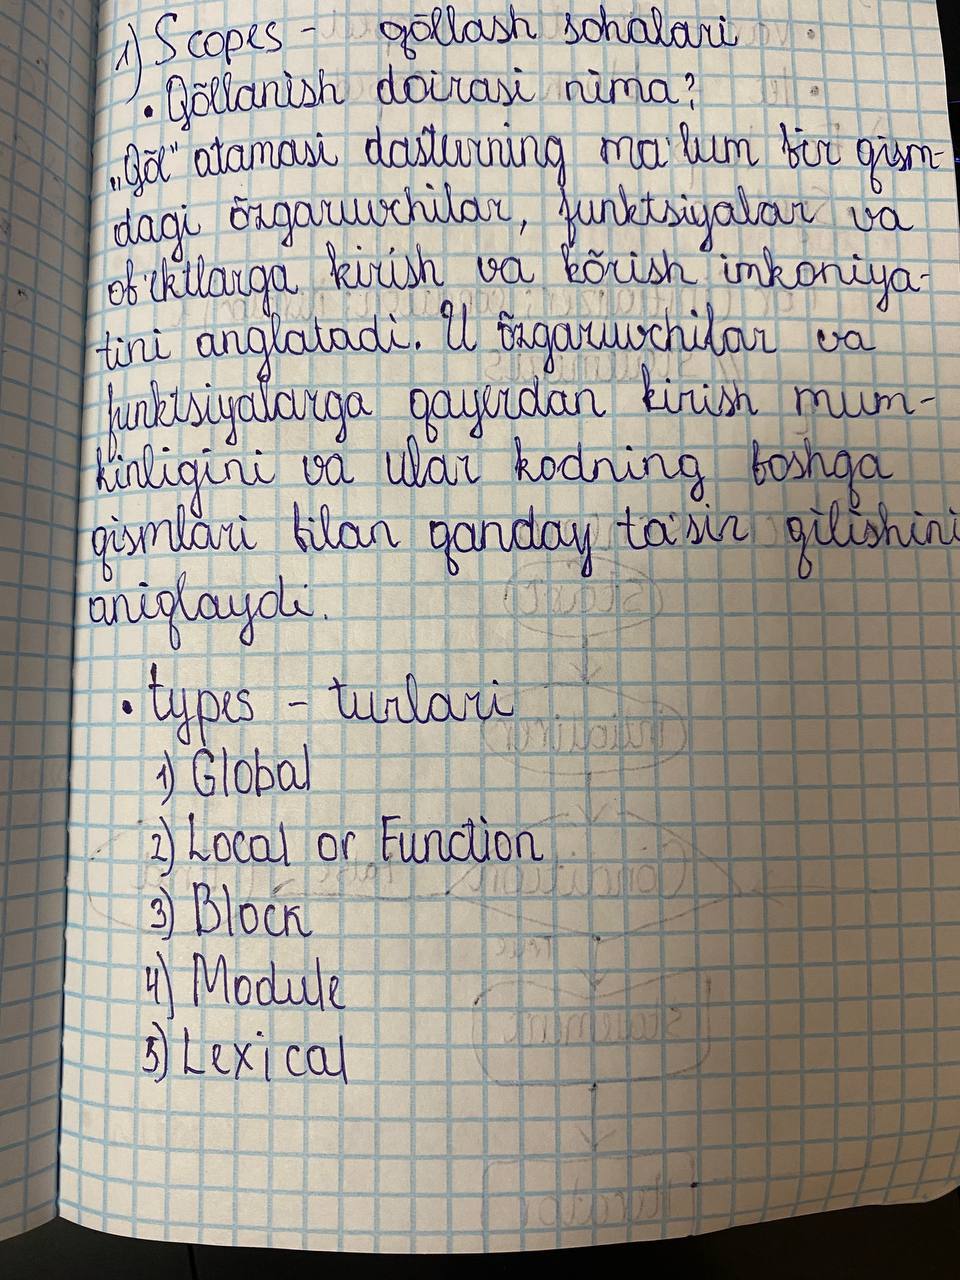 1) Scopes - qõllash sohalari
• Qõllanish doirasi nima?
„Qõl" atamasi dasturning ma'lum bir qism-
dagi õzgaruvchilar, funktsiyalar va
ob'ektlarga kirish va kõrish imkoniya-
tini anglatadi. U õzgaruvchilar va
funktsiyalarga qayerdan kirish mum-
kinligini va ular kodning boshqa
qismlari bilan qanday ta'sir qilishini
aniqlaydi.
• types - turlari
1) Global
2) Local or Function
3) Block
4) Module
5) Lexical